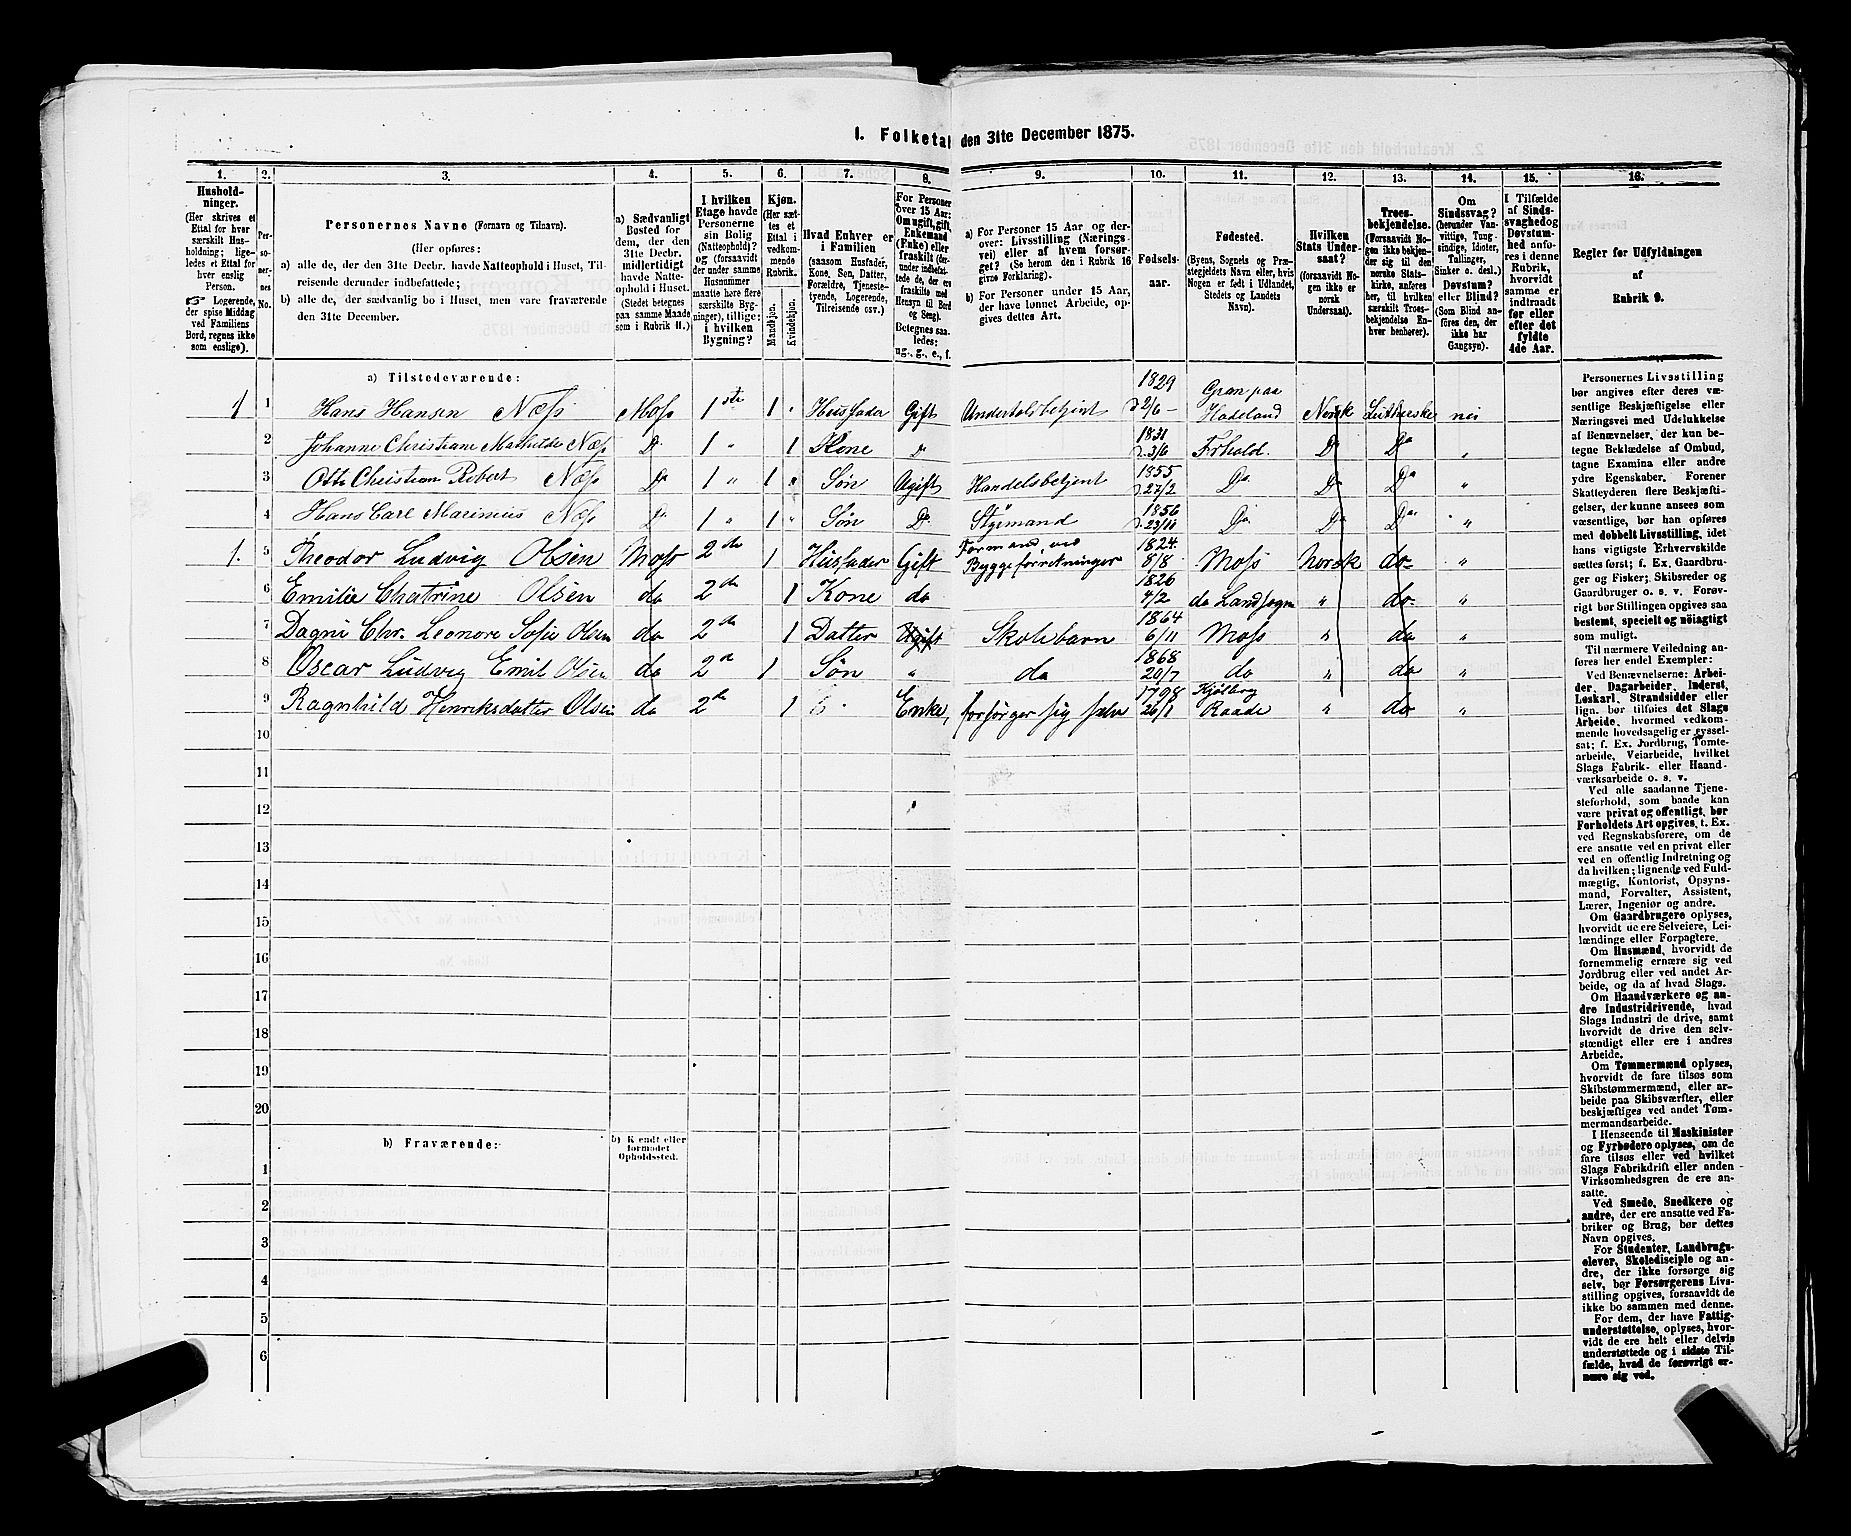 1. Folketal den 31te December 1875.
1. 2. 3. 4. 5. 6. 7. 8. 9. 10. 11. 12. 13. 14. 15. 16.
Hushold-
ninger.
(Her skrives et
Ettal for hver
særskilt Hus-
holdning; lige-
ledes et Ettal for
hver enslig
Person.
☞ Logerende,
der spise Middag
ved Familiens
Bord, regnes ikke
som enslige).
Per-
sone-
nernes
No.
Personernes Navne (Fornavn og Tilnavn).
(Her opføres:
a) alle de, der den 31te Decbr. havde Natteophold i Huset, Til-
reisende derunder indbefattede;
b) alle de, der sædvanlig bo i Huset, men vare fraværende
den 31te December.
a) Sædvanligt
Bosted for
dem, der den
31te Decbr.
midlertidigt
havde Natte-
ophold i Huset.
(Stedet betegnes
paa samme Maade
som i Rubrik 11.)
I hvilken
Etage havde
Personerne
sin Bolig
(Natteophold)?
og (forsaavidt
der under samme
Husnummer
maatte høre flere
særskilte Byg-
ninger), tillige:
i hvilken
Bygning?
Kjøn.
(Her sæt-
tes et
Ettal i
vedkom-
mende
Rubrik.)
Mandkjøn.
Kvindekjøn.
Hvad Enhver er
i Familien
(saasom Husfader,
Kone, Søn, Datter,
Forældre, Tjeneste-
tyende, Logerende,
Tilreisende osv.)
For Personer
over 15 Aar:
Om ugift, gift,
Enkemand
(Enke) eller
fraskilt
(der under-
indbefat-
tede de, der ere
fraskilte med
Hensyn til Bord
og Seng).
Betegnes saa-
ledes:
ug., g., e., f.
a) For Personer 15 Aar og der-
over: Livsstilling (Nærings-
vei) eller af hvem forsør-
get? (Se herom den i Rubrik 16
givne Forklaring).
b) For Personer under 15 Aar,
der have lønnet Arbeide, op-
gives dettes Art.
Fødsels-
aar.
Fødested.
(Byens, Sognets og Præ-
stegjeldets Navn eller, hvis
Nogen er født i Udlandet,
Stedets og Landets
Navn).
Hvilken
Stats Under-
saat?
(forsaavidt No-
gen ikke er
norsk
Undersaat).
Troes-
bekjendelse.
(Forsaavidt No-
gen ikke bekjen-
der sig til den
norske Stats-
kirke, anføres
her, til hvilken
særskilt Troes-
bekjendelse En-
hver henhører).
Om
Sindssvag?
(herunder Van-
vittige, Tung-
sindige, Idioter,
Tullinger,
Sinker o. desl.)
Døvstum?
eller Blind?
(Som Blind an-
føres den, der
ikke har
Gangsyn).
I Tilfælde
af Sinds-
svaghed og
Døvstum-
hed anfø-
res i denne
Rubrik,
hvorvidt
samme er
indtraadt
før eller
efter det
fyldte
4de Aar.
Regler før Udfyldningen
af
Rubrik 9.
a) Tilstedeværende:
1 1 Hans Hansen Næss Moss 1ste 1 Husfader Gift Undertolsbetjent 1829 2/6 Gran paa Hadeland Norsk Lutherske nei
2 Johanne Christiane Mathilde Næss Do 1 " 1 Kone Do 1831 3/6 Frhald. Do Do "
3 Otto Christian Robert Næss Do 1 " 1 Søn Ugift Handelsbetjent 1855 27/2 Do Do Do "
4 Hans Carl Marinius Næss Do 1 " 1 Søn Do Styrmand 1856 23/10 Do Do Do "
1. 5 Theodor Ludvig Olsen Moss 2den 1 Husfader Gift Formand ved Byggeforretninger 1824 8/8 Moss Norsk do "
6 Emilie Chatrine Olsen do 2den 1 Kone do 1826 4/2 do Landsogn " do "
7 Dagni Chr. Leonore Sofie Olsen do 2den 1 Datter Ugift Skolebarn 1864 6/11 Moss " do "
8 Oscar Ludvig Emil Olsen do 2den 1 Søn " do 1868 20/7 do " do "
9 Ragnhild Henriksdatter Olsen do 2den 1 Enke, forsørger sig selv 1798 26/1 Raade " do "
10
11
12
13
14
15
16
17
18
19
20
b) Fraværende:
b) Kjendt eller
formodet
Opholdssted.
1
2
3
4
5
6
Personernes Livsstilling
bør angives efter deres væ-
sentlige Beskjæftigelse eller
Næringsvei med Udelukkelse
af Benævnelser, der kun be-
tegne Beklædelse af Ombud,
tagne Examina eller andre
ydre Egenskaber. Forener
Skatteyderen flere Beskjæfti-
gelser, der kunne ansees som
væsentlige, bør han opføres
med dobbelt Livsstilling, idet
hans vigtigste Erhvervskilde
sættes først; f. Ex. Gaardbru-
ger og Fisker; Skibsreder og
Gaardbruger o. s. v. Forøv-
rigt bør Stillingen opgives saa
bestemt, specielt og nöiagtigt
som muligt.
Til nærmere Veiledning an-
føres her endel Exempler:
Ved Benævnelserne: Arbei-
der, Dagarbeider, Inderst,
Løskarl, Strandsidder eller
lign. bør tilføies det Slags
Arbeide, hvormed vedkom-
mende hovedsagelig er syssel-
sat; f. Ex. Jordbrug, Tomte-
arbeide, Veiarbeide, hvilket
Slags Fabrik- eller Haand-
værksarbeide o. s. v.
Ved alle saadanne Tjene-
steforhold, som baade kan
være privat og offentligt, bør
Forholdets Art opgives, t. Ex.
ved Regnskabsførere, om de
ere ansatte ved en privat eller
ved en offentlig Indretning og
da hvilken; lignende ved Fuld-
mægtig, Kontorist, Opsyns-
mand, Forvalter, Assistent,
Lærer, Ingeniør og andre.
Om Gaardbrugere oplyses,
hvorvidt de ere Selveiere, Lei-
lændinge eller Forpagtere.
Om Husmænd, hvorvidt de
fornemmelig ernære sig ved
Jordbrug eller ved andet Ar-
beide, og da af hvad Slags.
Om Haandværkere og an-
dre Industridrivende, hvad
Slags Industri de drive, samt
hvorvidt de drive den selv-
stændigt eller ere i andres
Arbeide.
Om Tømmermænd oplyses,
hvorvidt de fare tilsøs som
Skibstømmermænd, eller ar-
beide paa Skibsværfter, eller
beskjæftiges ved andet Tøm-
mermandsarbeide.
I Henseende til Maskinister
og Fyrbødere oplyses, om de
fare tilsøs eller ved hvilket
Slags Fabrikdrift eller anden
Virksomhedsgren de ere an-
satte.
Ved Smede, Snedkere og
andre, der ere ansatte ved Fa-
briker og Brug, bør dettes
Navn opgives.
For Studenter, Landbrugs-
elever, Skoledisciple og an-
dre, der ikke forsørge sig
selv, bør Forsørgerens Livs-
stilling opgives, forsaavidt de
ikke bo sammen med denne.
For dem, der have Fattig-
understøttelse, oplyses, hvor-
vidt de ere helt eller delvis
understøttede og i sidste Til-
fælde, hvad de forøvrigt er-
nære sig ved.